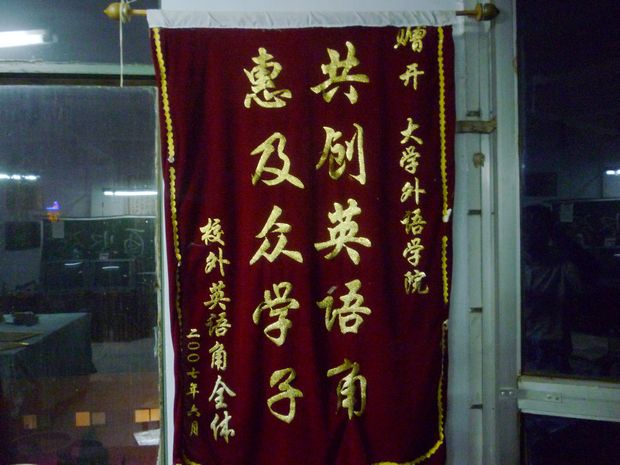 赠开 大学外语学院
共创英语角
惠及众学子
校外英语角全体
二〇〇七年六月